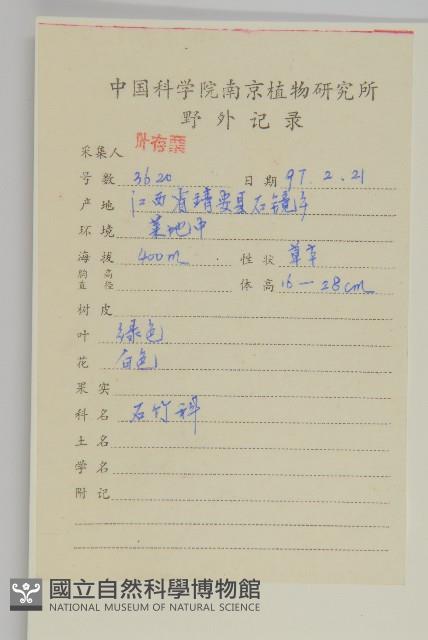 中国科学院南京植物研究所
野外记录
采集人
号数 3620 日期 97.2.21
产地 江西省靖安县石镜
环境 菜地中
海拔 400m 性状 草本
胸高直径 体高 16—28cm
树皮
叶 绿色
花 白色
果实
科名 石竹科
土名
学名
附记
國立自然科學博物館
NATIONAL MUSEUM OF NATURAL SCIENCE